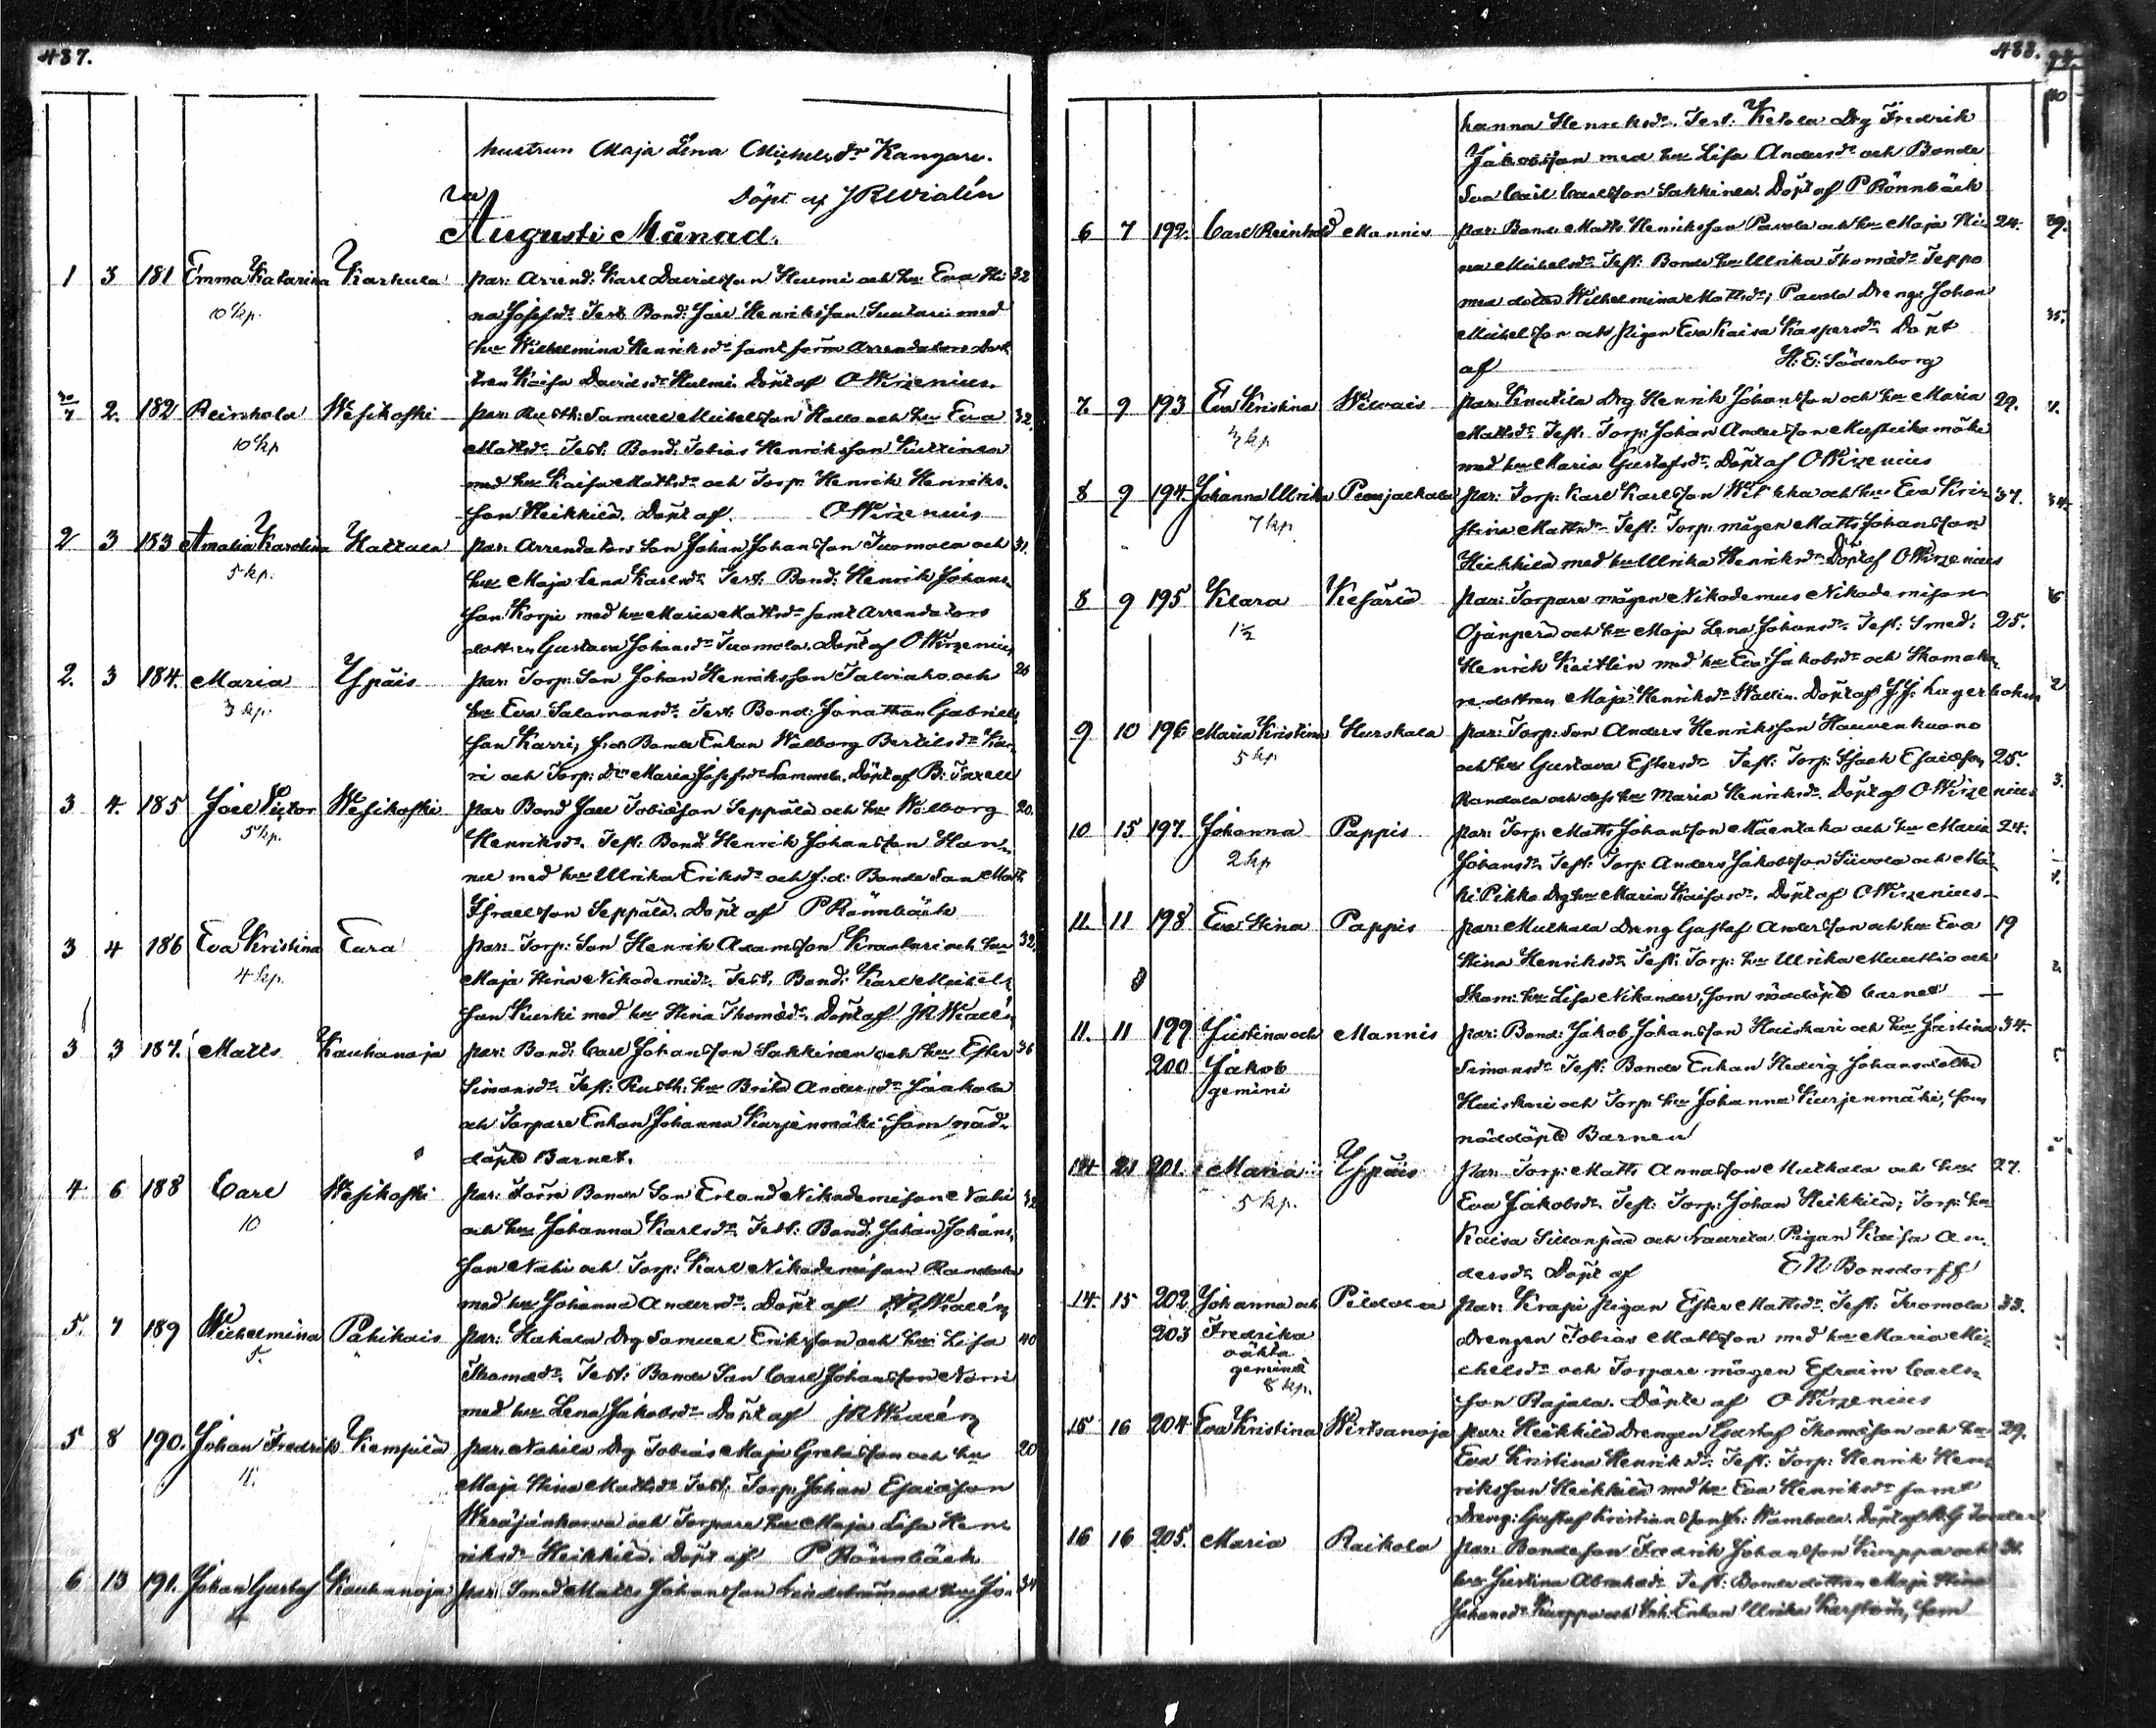 437.
hustrun Maja Lena Michelsdr Kangare.
Döpt af J R Wialén
Augusti Månad.
1 3 181 Emma Katarina Karhula par: Arrend: Karl Davidsson Hulmi och hu Eva Sti 32
10 kp. na Josefsdr Test: Bond: Joel Henriksson Suutari med
hu Wilhelmina Henriksdr samt förra Arrendators dot
tren Kaisa Davidsdr Hulmi. Döpt af O Wirzenius.
30/7 2. 182 Reinhold Wesikoski par: Rusth: Samuel Michelsson Hallo och hu Eva 32.
10 kp Mattsdr Test: Bond: Tobias Henriksson
med hu Kaisa Mattsdr och Torp: Henrik Henriks-
son Heikkilä. Döpt af O Wirzenius
2 3 183 Amalia Karolina Hattula par: Arrendators Son Johan Johansson Tuomola och 31.
5 kp. hu Maja Lena Karlsdr Test: Bond: Henrik Johans-
son Korpi med hu Maria Mattsdr samt Arrendators
dottren Gustava Johansdr Tuomola. Döpt af O Wirzenius
2. 3 184. Maria Yspäis par: Torp: Son Johan Henriksson Talviaho och 26
3 kp. hu Eva Salamonsdr Test: Bond: Jonathan Gabriels
son Karri, f.d. Bonde Enkan Walborg Bertilsdr Kar-
ri och Torp: Dr Maria Josefsdr Lammela. Döpt af B: Taxell
3 4. 185 Joel Victor Wesikoski par Bond Joel Tobiasson Seppälä och hu Walborg 20.
5 kp. Henriksdr. Test: Bond: Henrik Johansson Han-
nu med hu Ulrika Eriksdr och f.d. Bonde Son Matts
Israelsson Seppälä. Döpt af P Rönnbäck
3 4 186 Eva Kristina Eura par: Torp: Son Henrik Adamsson och hu 32.
4 kp. Maja Stina Nikodemidr. Test: Bond: Karl Michels-
son Kurki med hu Stina Thomasdr. Döpt af J R Wialén
3 3 187. Matts Kauhanoja par: Bond: Carl Johansson Sakkinen och hu Ester 36
Simonsdr. Test: Rusth: hu Brita Andersdr Jaakola
och Torpare Enkan Johanna Kurjenmäki, som nöd-
döpte Barnet.
4 6 188 Carl Wesikoski par: Förra Bonden Son Erland Nikodemisson Nahi 32
10 och hu Johanna Karlsdr. Test: Bond: Johan Johans-
son Nahi och Torp: Karl Nikodemisson Randala
med hu Johanna Andersdr. Döpt af J R Wialén
5. 7 189 Wilhelmina Pahikais par: Hakala Drg Samuel Eriksson och hu Lisa 40
5. Thomasdr. Test: Bonde Son Carl Johansson Norri
med hu Lena Jakobsdr Döpt af J R Wialén
5 8 190. Johan Fredrik Kempilä par. Nahila Drg Tobias Maja Gretasson och hu 20
4. Maja Stina Mattsdr Test: Torp: Johan Esaiasson
och Torpare hu Maja Lisa Hen-
riksdr Heikkilä. Döpt af P Rönnbäck
6 13 191. Johan Gustaf Kauhanoja par: Smed Matts Johansson Lindström och hu Jo 34
4

438.
hanna Henriksdr. Test. Ketola Drg Fredrik
Jakobsson med hu Lisa Andersdr och Bonde
Son Carl Carlsson Sakkinen. Döpt af P Rönnbäck
6 7 192. Carl Reinhold Mannis par: Bond: Matts Henriksson Pavola och hu Maja Sti- 24.
na Michelsdr Test: Bonde hu Ulrika Thomasdr Seppo
med dotter Wilhelmina Mattsdr; Pavola Dreng Johan
Michelsson och Pigan Eva Kaisa Kaspersdr Döpt
af H: E: Söderborg
7. 9 193 Eva Kristina Wilvais par: Knutila Drg Henrik Johansson och hu Maria 29.
½ kp Mattsdr Test. Torp: Johan Andersson
med hu Maria Gustafsdr. Döpt af O Wirzenius
8 9 194. Johanna Ulrika Peonjaekala par: Torp: Karl Karlsson och hu Eva Kris 37.
7 kp stina Mattsdr Test: Torp. mågen Matts Johansson
Heikkilä med hu Ulrika Henriksdr Döpt af O Wirzenius
8 9 195 Klara Kesärlä par: Torpare mågen Nikodemus Nikodemison
1½ Ojanperä och hu Maja Lena Johansdr Test: Smed: 25.
Henrik Keitlin med hu Eva Jakobsdr och Skomaka-
redottren Maja Henriksdr Wallin. Döpt af J J: Lagerbohm
9 10 196 Maria Kristina Hurskala par: Torp: Son Anders Henriksson Hauvenkuono
5 kp och hu Gustava Estersdr Test: Torp: Isaak Esaiasson 25.
Randala och dess hu Maria Henriksdr. Döpt af O Wirzenius
10 15 197. Johanna Pappis par: Torp: Matts Johansson Mäentaka och hu Maria 24.
2 kp Johansdr Test: Torp: Anders Jakobsson Siivola och Mä-
ki Pikko Drg hu Maria Kaisasdr. Döpt af O Wirzenius
11. 11 198 Eva Stina Pappis par: Mulkala Dreng Gustaf Andersson och hu Eva 19
Stina Henriksdr Test: Torp: hu Ulrika och
Skom: hu Lisa Nikander, som nöddöpte barnet —
11. 11 199 Justina och Mannis par: Bond: Jakob Johansson Huiskari och hu Justina 34.
200 Jakob Simonsdr Test: Bonde Enkan Hedvig Johansdotter
gemini Huiskari och Torp: hu Johanna Kurjenmäki, som
nöddöpte Barnen
14 21 201. Maria Yspäis Par: Torp: Matts Annasson Mulkala och hu 27.
5 kp. Eva Jakobsdr. Test: Torp: Johan Heikkilä; Torp: hu
Kaisa Sillanpää och Pigan Kaisa An-
dersdr. Döpt af E N: Bonsdorff
14. 15 202 Johanna och Pildola par: Krapi pigan Ester Mattsdr. Test: Tuomola 33.
203 Fredrika drengen Tobias Mattsson med hu Maria Mi-
oäkta chelsdr och Torpare mågen Efraim Carls-
gemini 8 kp. son Rajala. Döpte af O Wirzenius
15 16 204 Eva Kristina Wirtsanoja par: Heikkilä Drengen Gustaf Thomasson och hu 29.
Eva Kristina Henriksdr. Test: Torp: Henrik Hen-
riksson Heikkilä med hu Eva Henriksdr samt
Dreng: Gustaf Kristiansson fr: Wambula. Döpt af
16 16 205. Maria Raikola par: Bondeson Fredrik Johansson Kurppa och 31.
hu Justina Abrahadr. Test: Bonde dottren Maja Stina
Johansdr Kurppa och Inh: Enkan Ulrika Karström, som